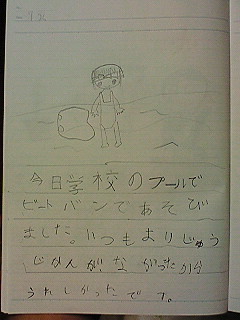 今日学校のプールで
ビートバンであそび
ました。いつもよりじゅう
じかんが、ながかったから
うれしかったです。